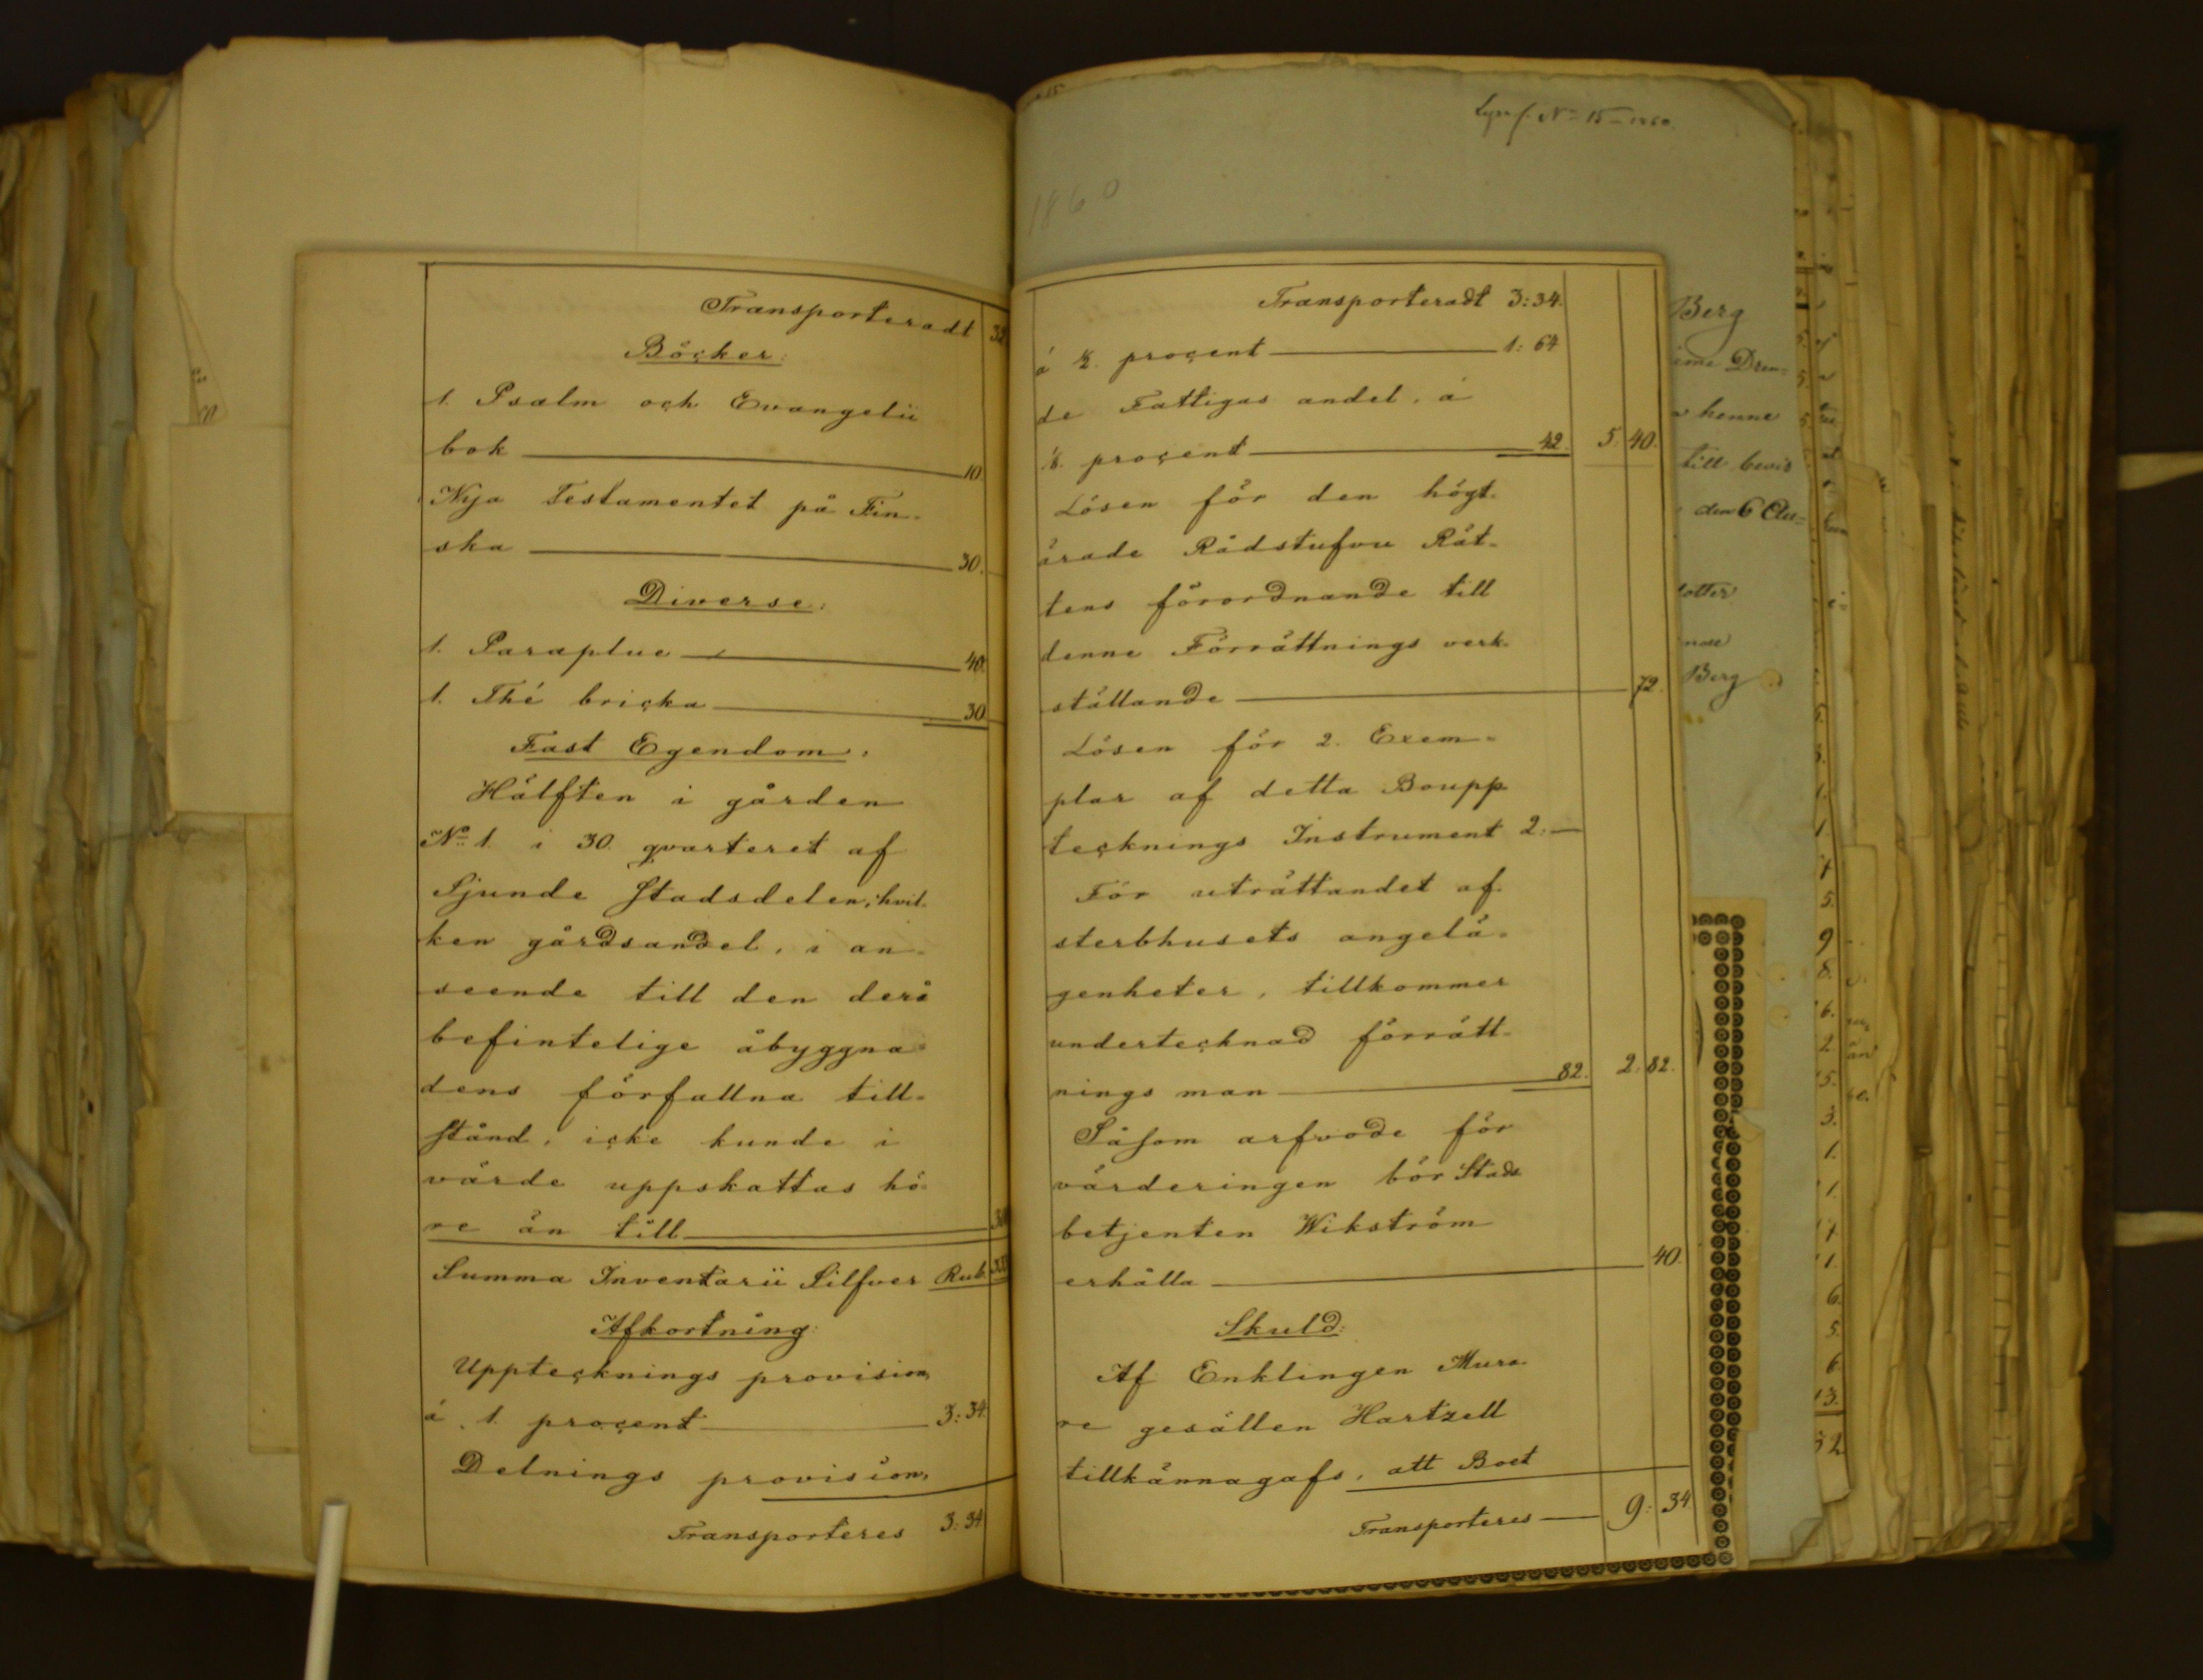 Transporteradt 32
Böcker:
1. Psalm och Evangelii
bok 10.
Nya Testamentet på Fin-
ska 30.
Diverse:
1. Paraplue 40.
1. Thé bricka 30
Fast Egendom.
Hälften i gården
No 1. i 30. qvarteret af
Sjunde Stadsdelen, hvil-
ken gårdsandel, i an-
seende till den derå
befintelige åbyggna-
dens förfallna till-
stånd, icke kunde i
värde uppskattas hö-
re än till 30
Summa Inventarii Silfver Rub.
Afkortning:
Uppteçknings provision,
á 1. proçent 3:34.
Delnings provision,
Transporteres 3:34
1860
No 15 - 1860.
Transporteradt 3:34.
á ½. proçent 1:64
de Fattigas andel, á
⅛. proçent 42. 5. 40.
Lösen för den högt-
ärade Rådstufvu Rät-
tens förordnande till
denne Förrättnings verk-
ställande 72.
Lösen för 2. Exem-
plar af detta Boupp-
teçknings Instrument 2:—
För uträttandet af
sterbhusets angelä-
genheter, tillkommer
underteçknad förrätt-
nings man 82. 2. 82.
Såsom arfvode för
värderingen bör Stads
betjenten Wikström
erhålla 40.
Skuld:
Af Enklingen Mura-
re gesällen Hartzell
tillkännagafs, att Boet
Transporteres 9: 34
Berg
henne
till bevis
den 6
Berg